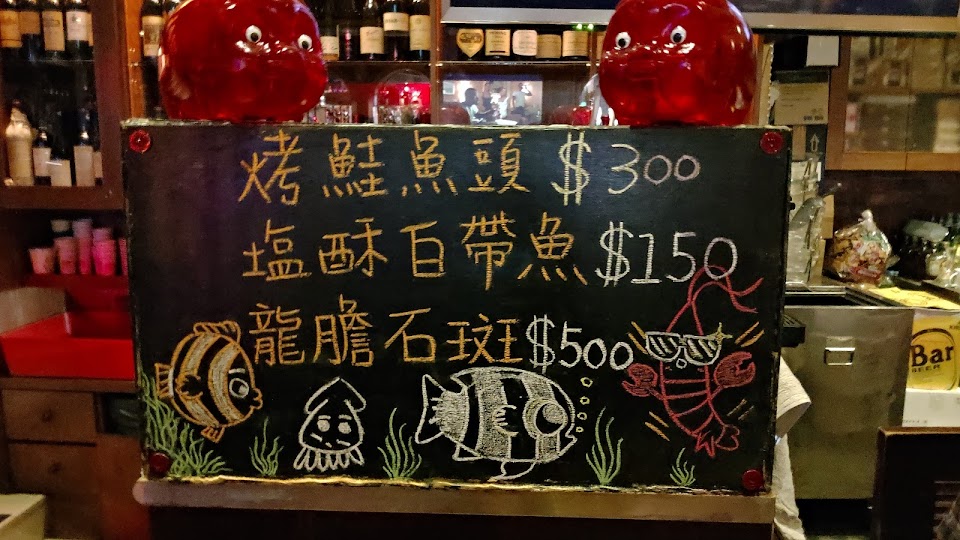 烤鮭魚頭 $300
塩酥白帶魚 $150
龍膽石斑 $500
Bar
BEER